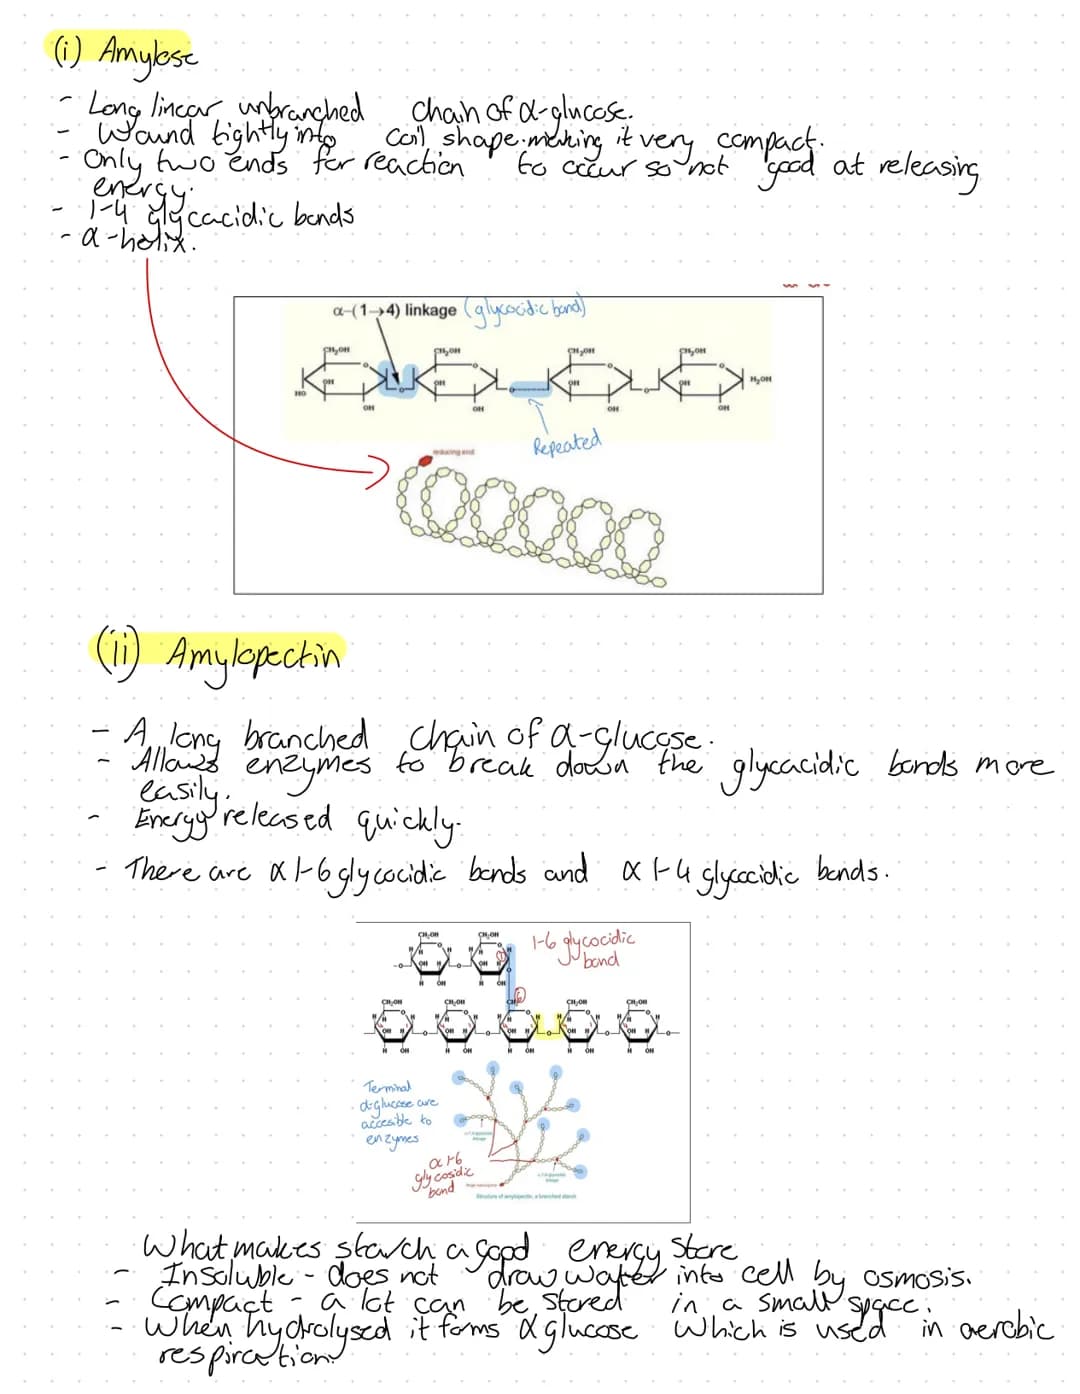 (i) Amylose
- Long linear unbranched chain of α-glucose.
- Wound tightly into coil shape making it very compact.
- Only two ends for reaction to occur so not good at releasing
energy.
- 1-4 glycacidic bonds
- α-helix.
α-(1→4) linkage (glycocidic bond)
CH₂OH CH₂OH CH₂OH CH₂OH
OH OH OH OH H,OH
HO OH OH OH OH
Repeated
reducing end
(ii) Amylopectin
- A long branched chain of α-glucose.
- Allows enzymes to break down the glycacidic bonds more
easily.
- Energy released quickly.
- There are α 1-6 glycocidic bonds and α 1-4 glycocidic bonds.
1-6 glycocidic
bond
Terminal
α-glucose are
accesible to
enzymes
α 1-6
glycosidic
bond
Structure of amylopectin, a branched starch
What makes starch a good energy store
- Insoluble - does not draw water into cell by osmosis.
- Compact - a lot can be stored in a small space.
- When hydrolysed it forms α glucose which is used in aerobic
respiration